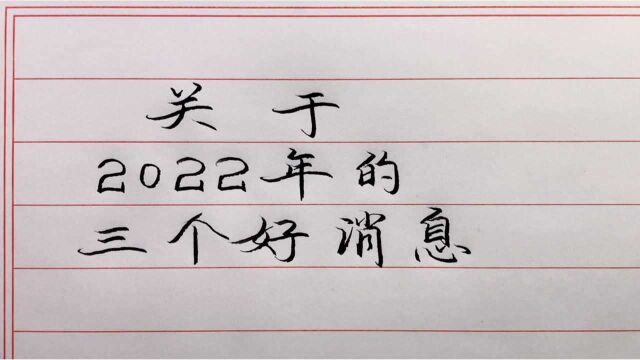 关于
2022年的
三个好消息